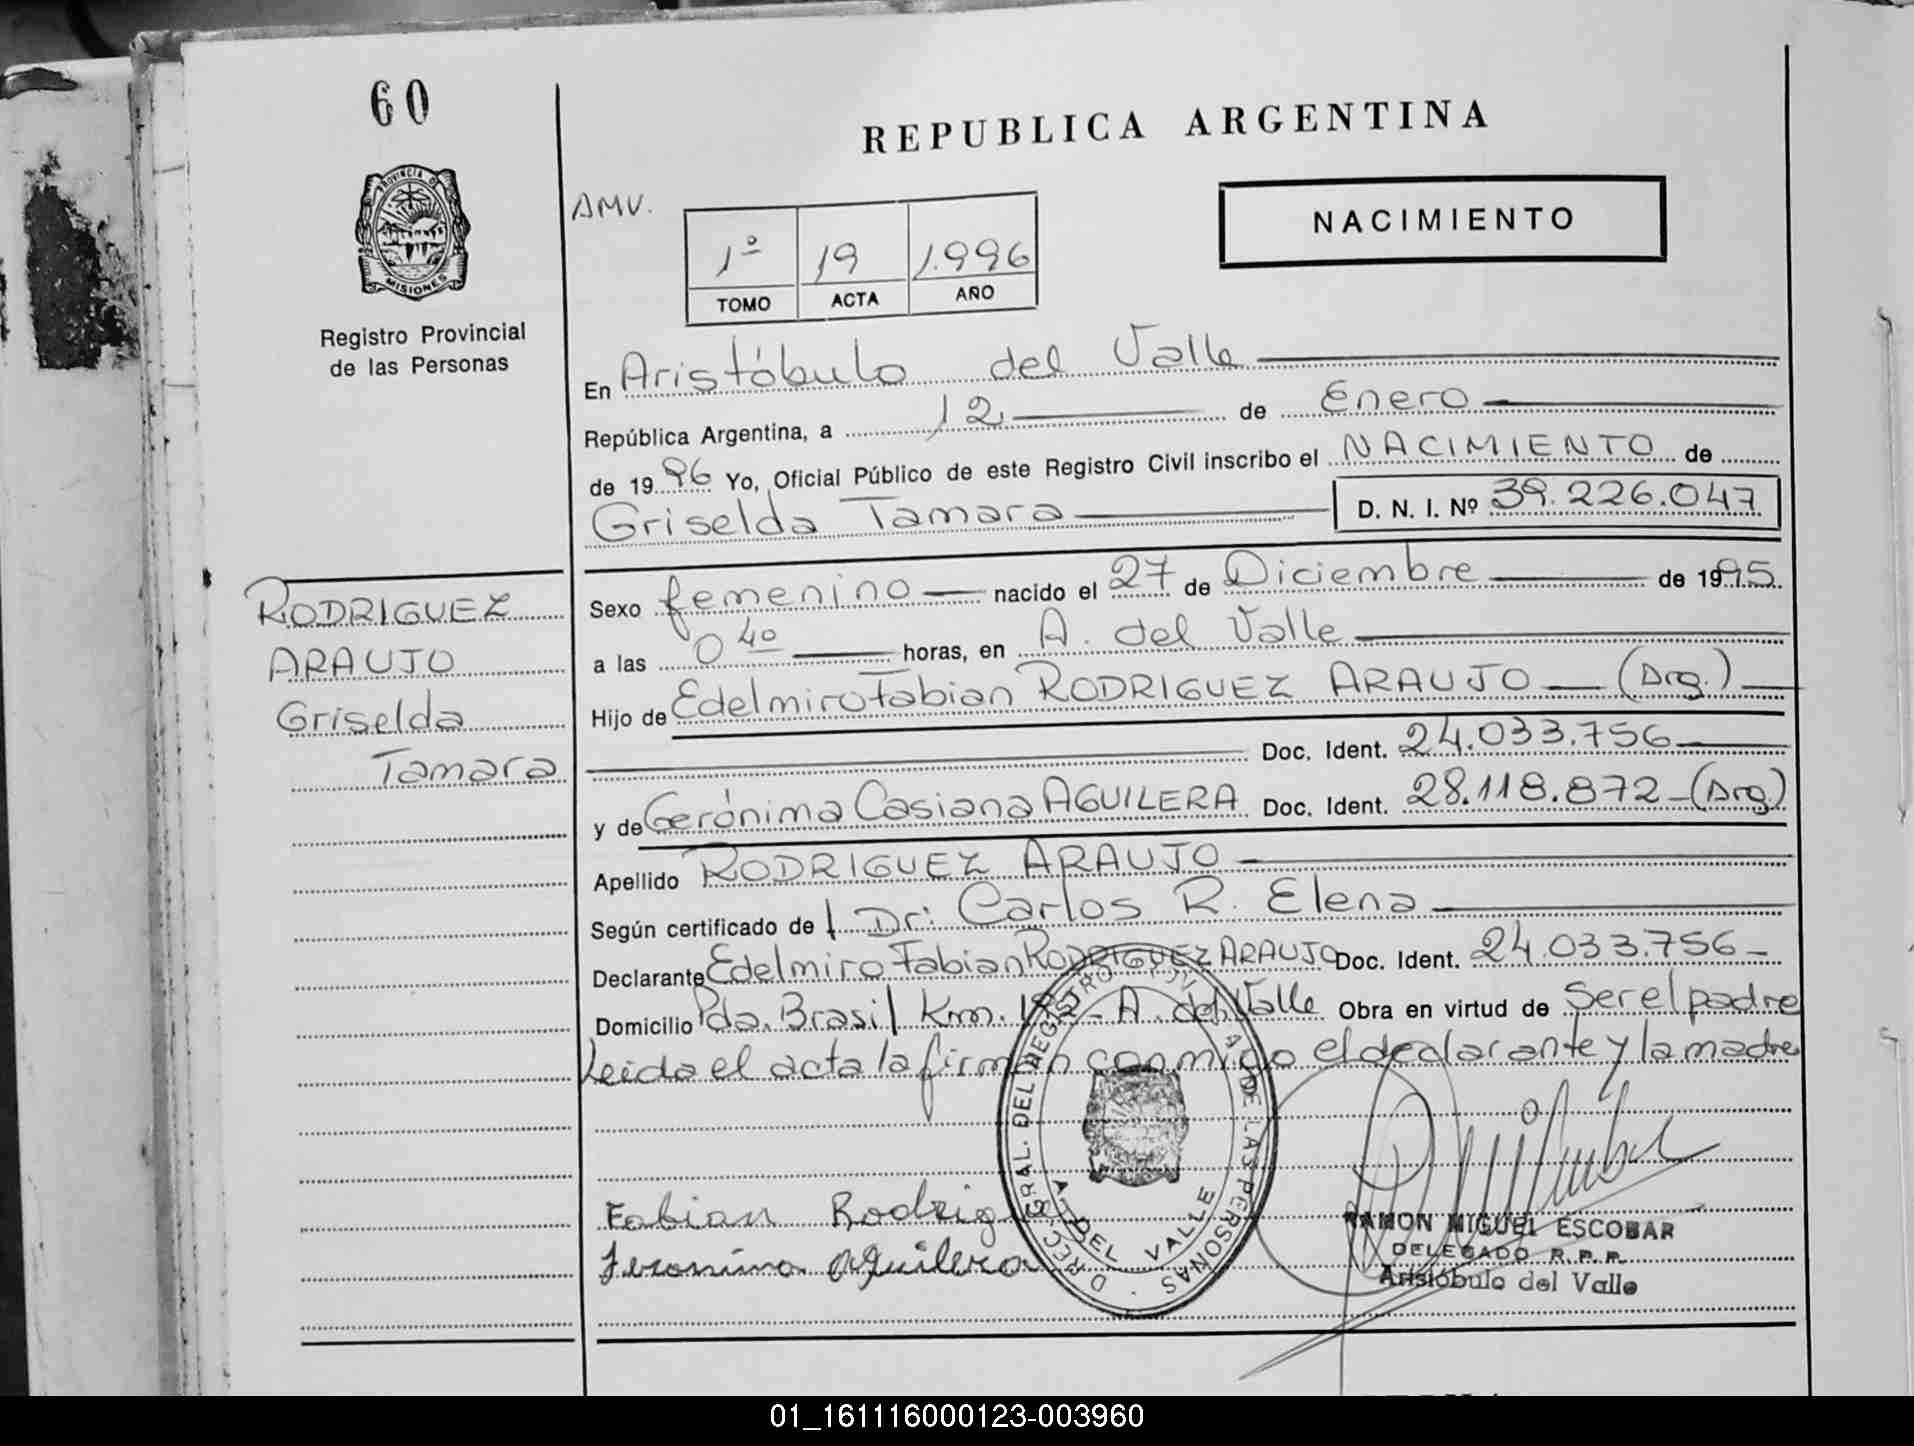 60
REPUBLICA ARGENTINA
PROVINCIA D
MISIONES
Registro Provincial
de las Personas
AMV.
NACIMIENTO
1º 19 1.996
TOMO ACTA AÑO
En Aristóbulo del Valle
República Argentina, a 12 de Enero
de 1996 Yo, Oficial Público de este Registro Civil inscribo el NACIMIENTO de
Griselda Tamara D. N. I. Nº 39.226.047
RODRIGUEZ
ARAUJO
Griselda
Tamara
Sexo femenino nacido el 27 de Diciembre de 1995
a las 0 40 horas, en A. del Valle
Hijo de Edelmiro Fabian RODRIGUEZ ARAUJO (Arg.)
Doc. Ident. 24.033.756
y de Gerónima Casiana AGUILERA Doc. Ident. 28.118.872 (Arg)
Apellido RODRIGUEZ ARAUJO
Según certificado de l Dr: Carlos R. Elena
Declarante Edelmiro Fabian RODRIGUEZ ARAUJO Doc. Ident. 24.033.756
Domicilio Pda. Brasil Km. 182 - A. del Valle Obra en virtud de ser el padre
Leida el acta la firman conmigo el declarante y la madre
Fabian Rodrig
Jeronima Aguilera
DEL REGISTRO DE LAS PERSONAS
A. DEL VALLE
RAMON MIGUEL ESCOBAR
DELEGADO R.P.P.
Aristóbulo del Valle
01_161116000123-003960